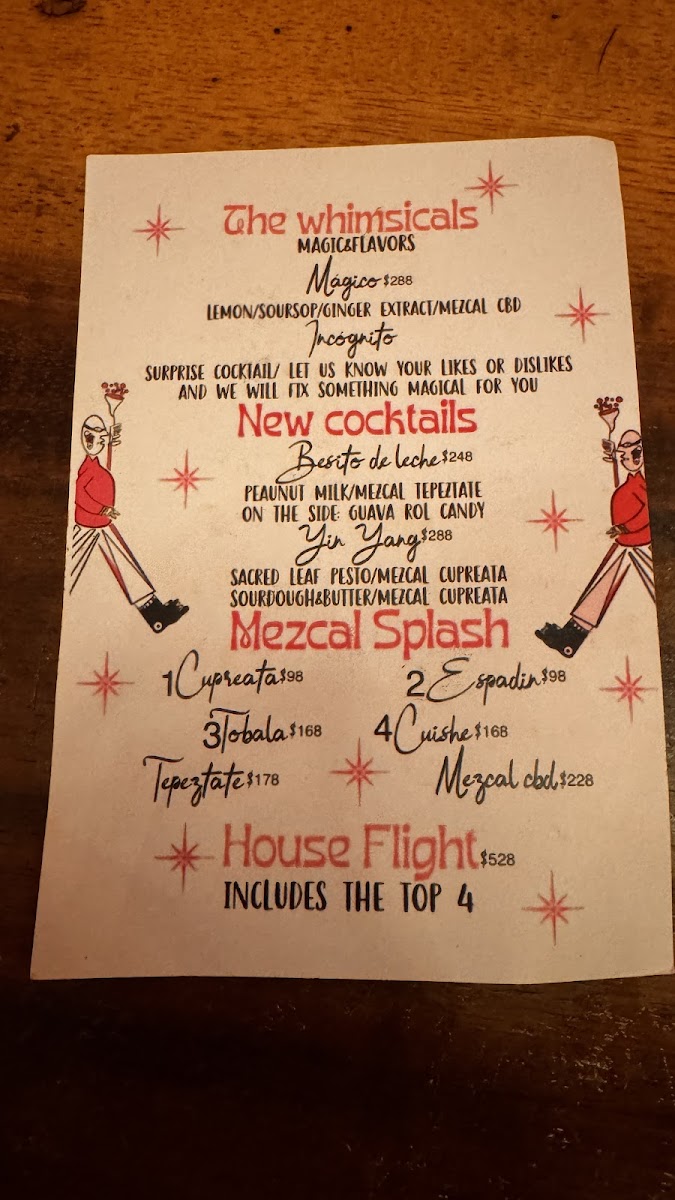 The whimsicals
MAGIC&FLAVORS
Mágico $288
LEMON/SOURSOP/GINGER EXTRACT/MEZCAL CBD
Incógnito
SURPRISE COCKTAIL/ LET US KNOW YOUR LIKES OR DISLIKES
AND WE WILL FIX SOMETHING MAGICAL FOR YOU
New cocktails
Besito de leche $248
PEAUNUT MILK/MEZCAL TEPEZTATE
ON THE SIDE: GUAVA ROL CANDY
Yin Yang $288
SACRED LEAF PESTO/MEZCAL CUPREATA
SOURDOUGH&BUTTER/MEZCAL CUPREATA
Mezcal Splash
1 Cupreata $98 2 Espadin $98
3 Tobala $168 4 Cuishe $168
Tepeztate $178 Mezcal cbd $228
House Flight $528
INCLUDES THE TOP 4